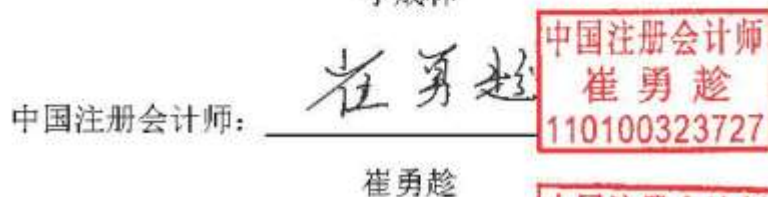 中国注册会计师：
崔勇趁
崔勇趁
中国注册会计师
崔勇趁
110100323727